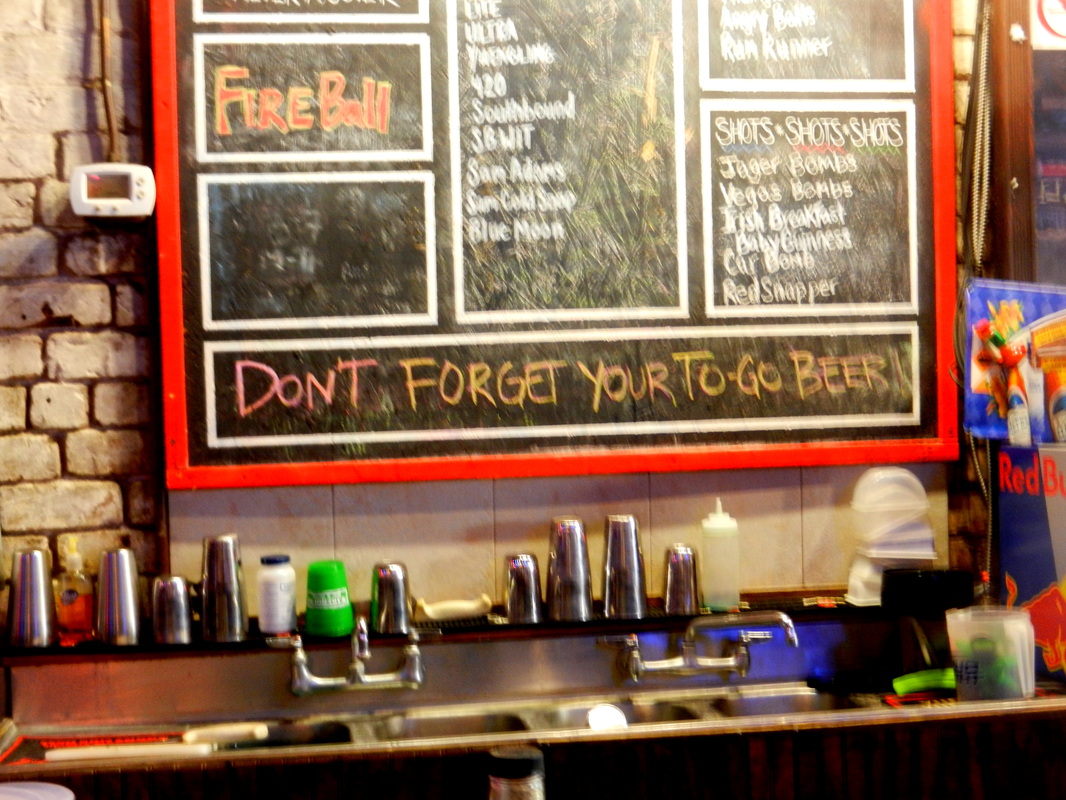 FIREBall
LITE
ULTRA
YUENGLING
420
Southbound
S.B WIT
Sam Adams
Blue Moon
Angry Balls
Rum Runner
SHOTS * SHOTS * SHOTS
Jager Bombs
Vegas Bombs
Irish Breakfast
Baby Guinness
Car Bomb
Red Snapper
DON'T FORGET YOUR TO-GO BEER!
Red Bu